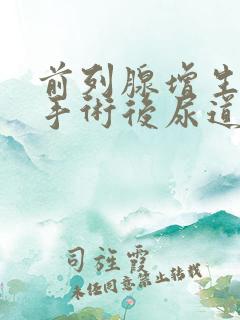 前列腺增生
手術後尿道
司旌霞
未经同意禁止转载